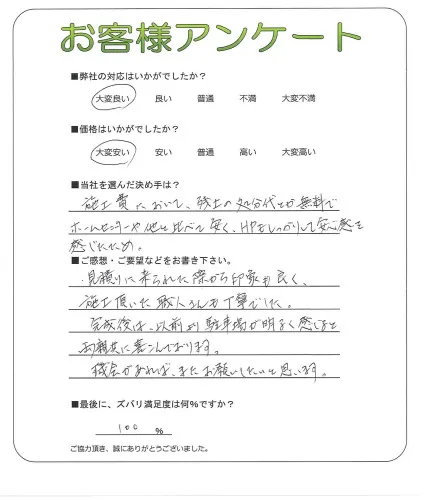 お客様アンケート
■弊社の対応はいかがでしたか？
大変良い 良い 普通 不満 大変不満
■価格はいかがでしたか？
大変安い 安い 普通 高い 大変高い
■当社を選んだ決め手は？
施工費において、残土の処分代とか無料で
ホームセンターや他と比べて安く、HPもしっかりして安心感を
感じたため。
■ご感想・ご要望などをお書き下さい。
見積りに来られた際から印象も良く、
施工頂いた職人さんも丁寧でした。
完成後は、以前より駐車場が明るく感じると
お親共に喜んでおります。
機会があれば、またお願いしたいと思います。
■最後に、ズバリ満足度は何%ですか？
100 %
ご協力頂き、誠にありがとうございました。